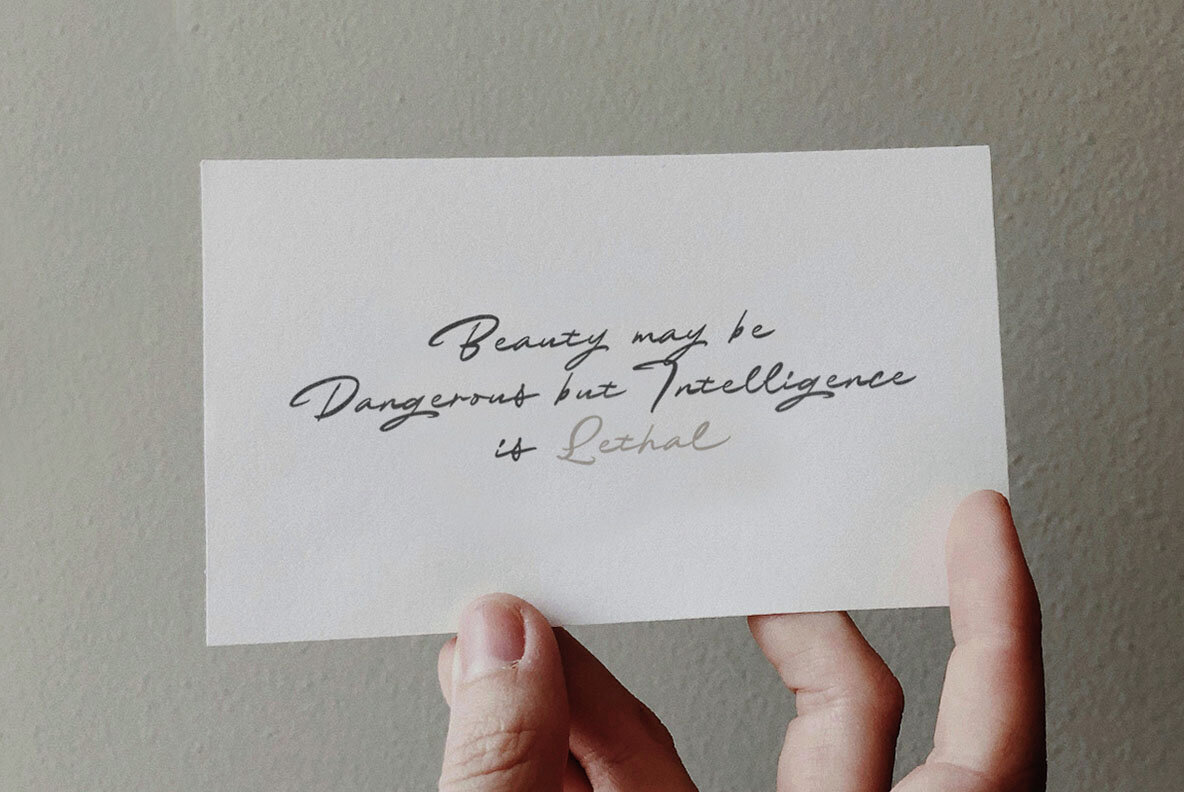 Beauty may be
Dangerous but Intelligence
is Lethal